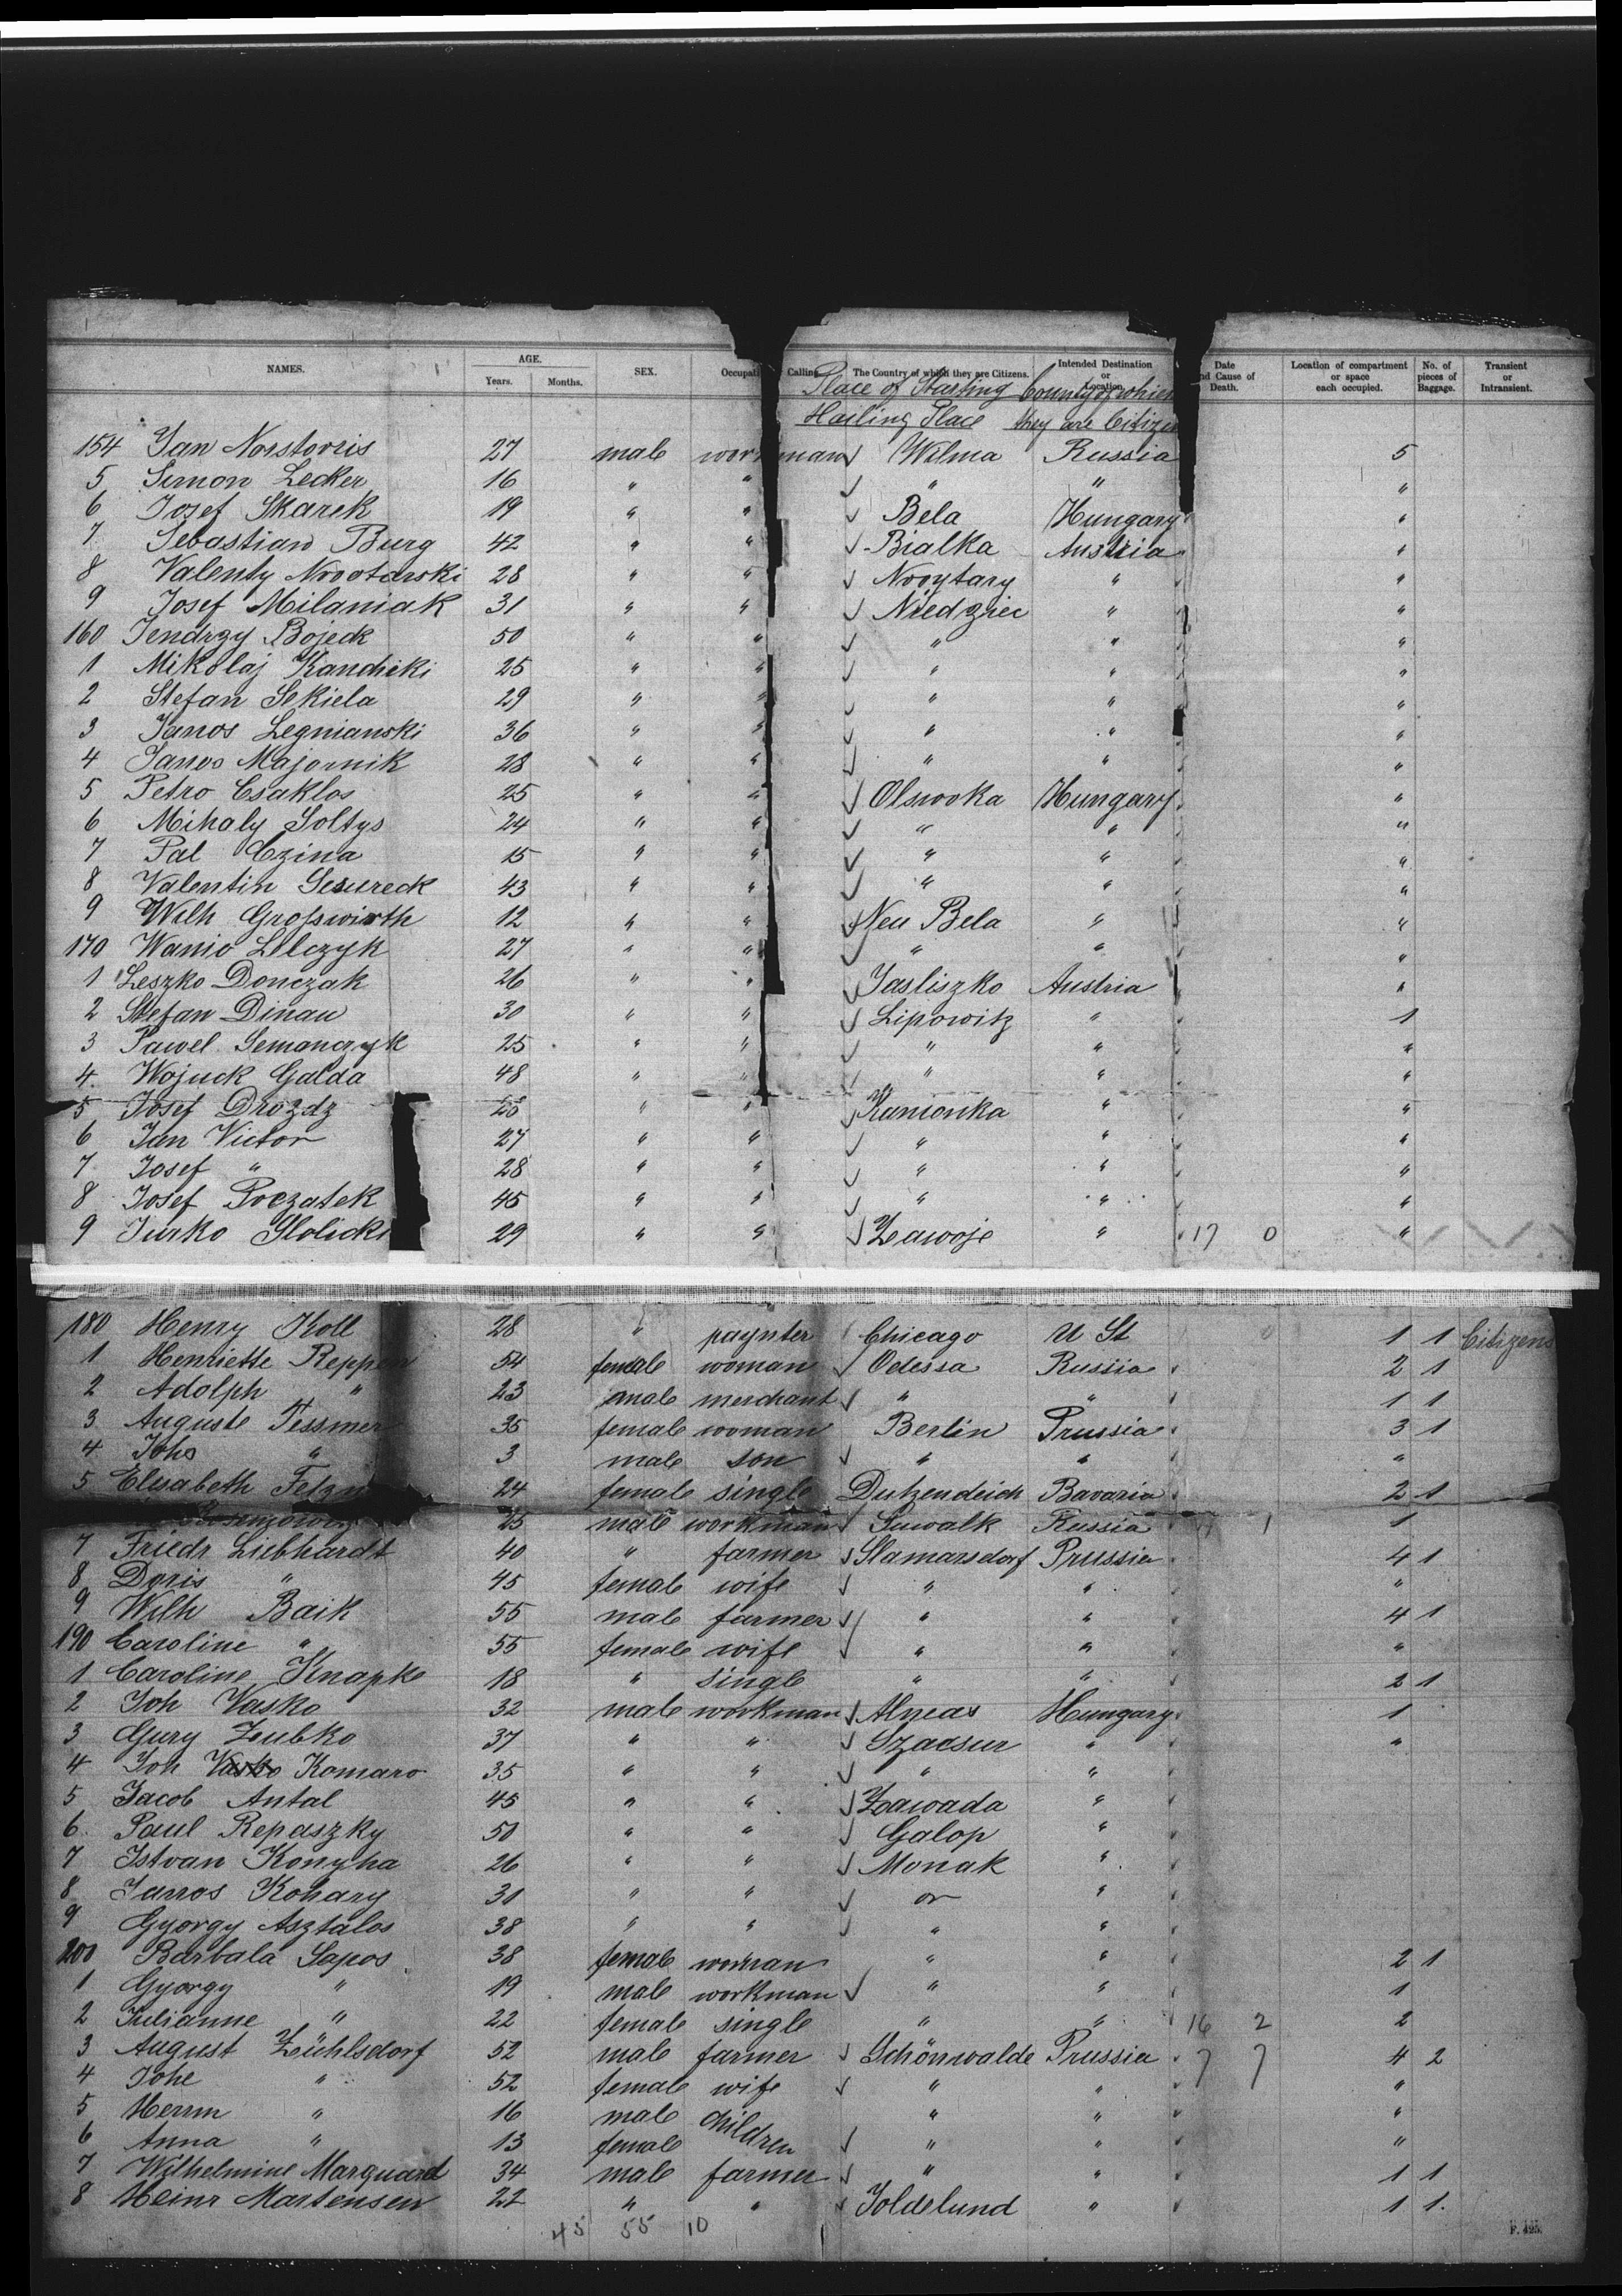 NAMES. AGE. Years. Months. SEX. Occupati Calling. The Country of which they are Citizens. Intended Destination or Location. Date nd Cause of Death. Location of compartment or space each occupied. No. of pieces of Baggage. Transient or Intransient.
Place of Starting Country of which
Hailing Place they are Citizen
154 Jan Norstorris 27 male workman Wilma Russia 5
5 Simon Lecker 16 " " " " "
6 Josef Skarek 19 " " Bela Hungary "
7 Sebastian Burg 42 " " Bialka Austria "
8 Valenty Nrootarski 28 " " Nrooytary " "
9 Josef Milaniak 31 " " Niedziec " "
160 Jendrzy Bojeck 50 " " " " "
1 Mikolaj Kandicki 25 " " " " "
2 Stefan Sekiela 29 " " " " "
3 Janos Legnianski 36 " " " " "
4 Janos Majornik 28 " " " " "
5 Petro Csaklos 25 " " Olswoka Hungary "
6 Mihaly Soltys 24 " " " " "
7 Pal Czina 15 " " " " "
8 Valentin Sesureck 43 " " " " "
9 Wilh Grosswirth 12 " " Neu Bela " "
170 Wanio Lelczyk 27 " " " " "
1 Leszko Donczak 26 " " Jasliszko Austria "
2 Stefan Dinau 30 " " Lipowitz " 1
3 Pawel Semanczyk 25 " " " " "
4 Wojuck Galda 48 " " " " "
5 Josef Drozdz " " Kamionka " "
6 Jan Victor 27 " " " " "
7 Josef " 28 " " " " "
8 Josef Poczatek 45 " " " " "
9 Jurko Slolicki 29 " " Zawoje " 17 0 "
180 Henry Koll 28 " paynter Chicago U St 1 1 Citizens
1 Henriette Reppen 54 female woman Odessa Russia 2 1
2 Adolph " 23 male merchant " " 1 1
3 Auguste Tessmer 35 female woman Berlin Prussia 3 1
4 Johs " 3 male son " " "
5 Elisabeth Fetzn 24 female single Dutzendeich Bavaria 2 1
25 male workman Suwalk Russia 1 1
7 Friedr Liebhardt 40 " farmer Slamarsdorf Prussia 4 1
8 Doris " 45 female wife " " "
9 Wilh Baik 55 male farmer " " 4 1
190 Caroline " 55 female wife " " "
1 Caroline Knapke 18 " single " " 2 1
2 Joh Vasko 32 male workman Almeas Hungary 1
3 Gury Zubko 37 " " Szacsur " "
4 Joh Vasko Komaro 35 " " " "
5 Jacob Antal 45 " " Zawada "
6 Paul Repaszky 50 " " Galop "
7 Istvan Konyha 26 " " Monak "
8 Janos Kohany 30 " " or "
9 Gyorgy Asztalos 38 " " " "
200 Barbala Sapos 38 female woman " " 2 1
1 Gyorgy " 19 male workman " " 1
2 Julianne " 22 female single " " 16 2 2
3 August Zühlsdorf 52 male farmer Schönwalde Prussia 7 7 4 2
4 Johe " 52 female wife " " "
5 Herrm " 16 male children " " "
6 Anna " 13 female " " "
7 Wilhelmine Marquard 34 male farmer " " 1 1
8 Heinr Martensen 22 " " Joldelund " 1 1.
45 55 10
F. 425.